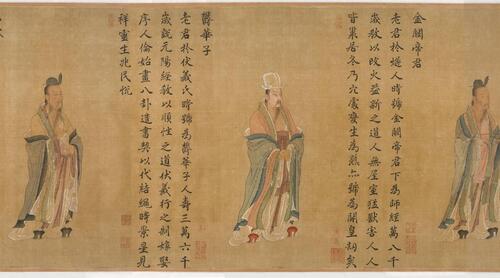 金闕帝君
老君於燧人時號金闕帝君下為師經萬八千
歲教以改火益新之道人無屋室猛獸害人人
皆巢居冬乃穴處變生為熟亦號為開皇
鬱華子
老君於伏羲氏時號為鬱華子人壽三萬六千
歲說元陽經教以順性之道伏羲行之制嫁娶
序人倫始畫八卦造書契以代結繩時景星見
祥靈生兆民悅